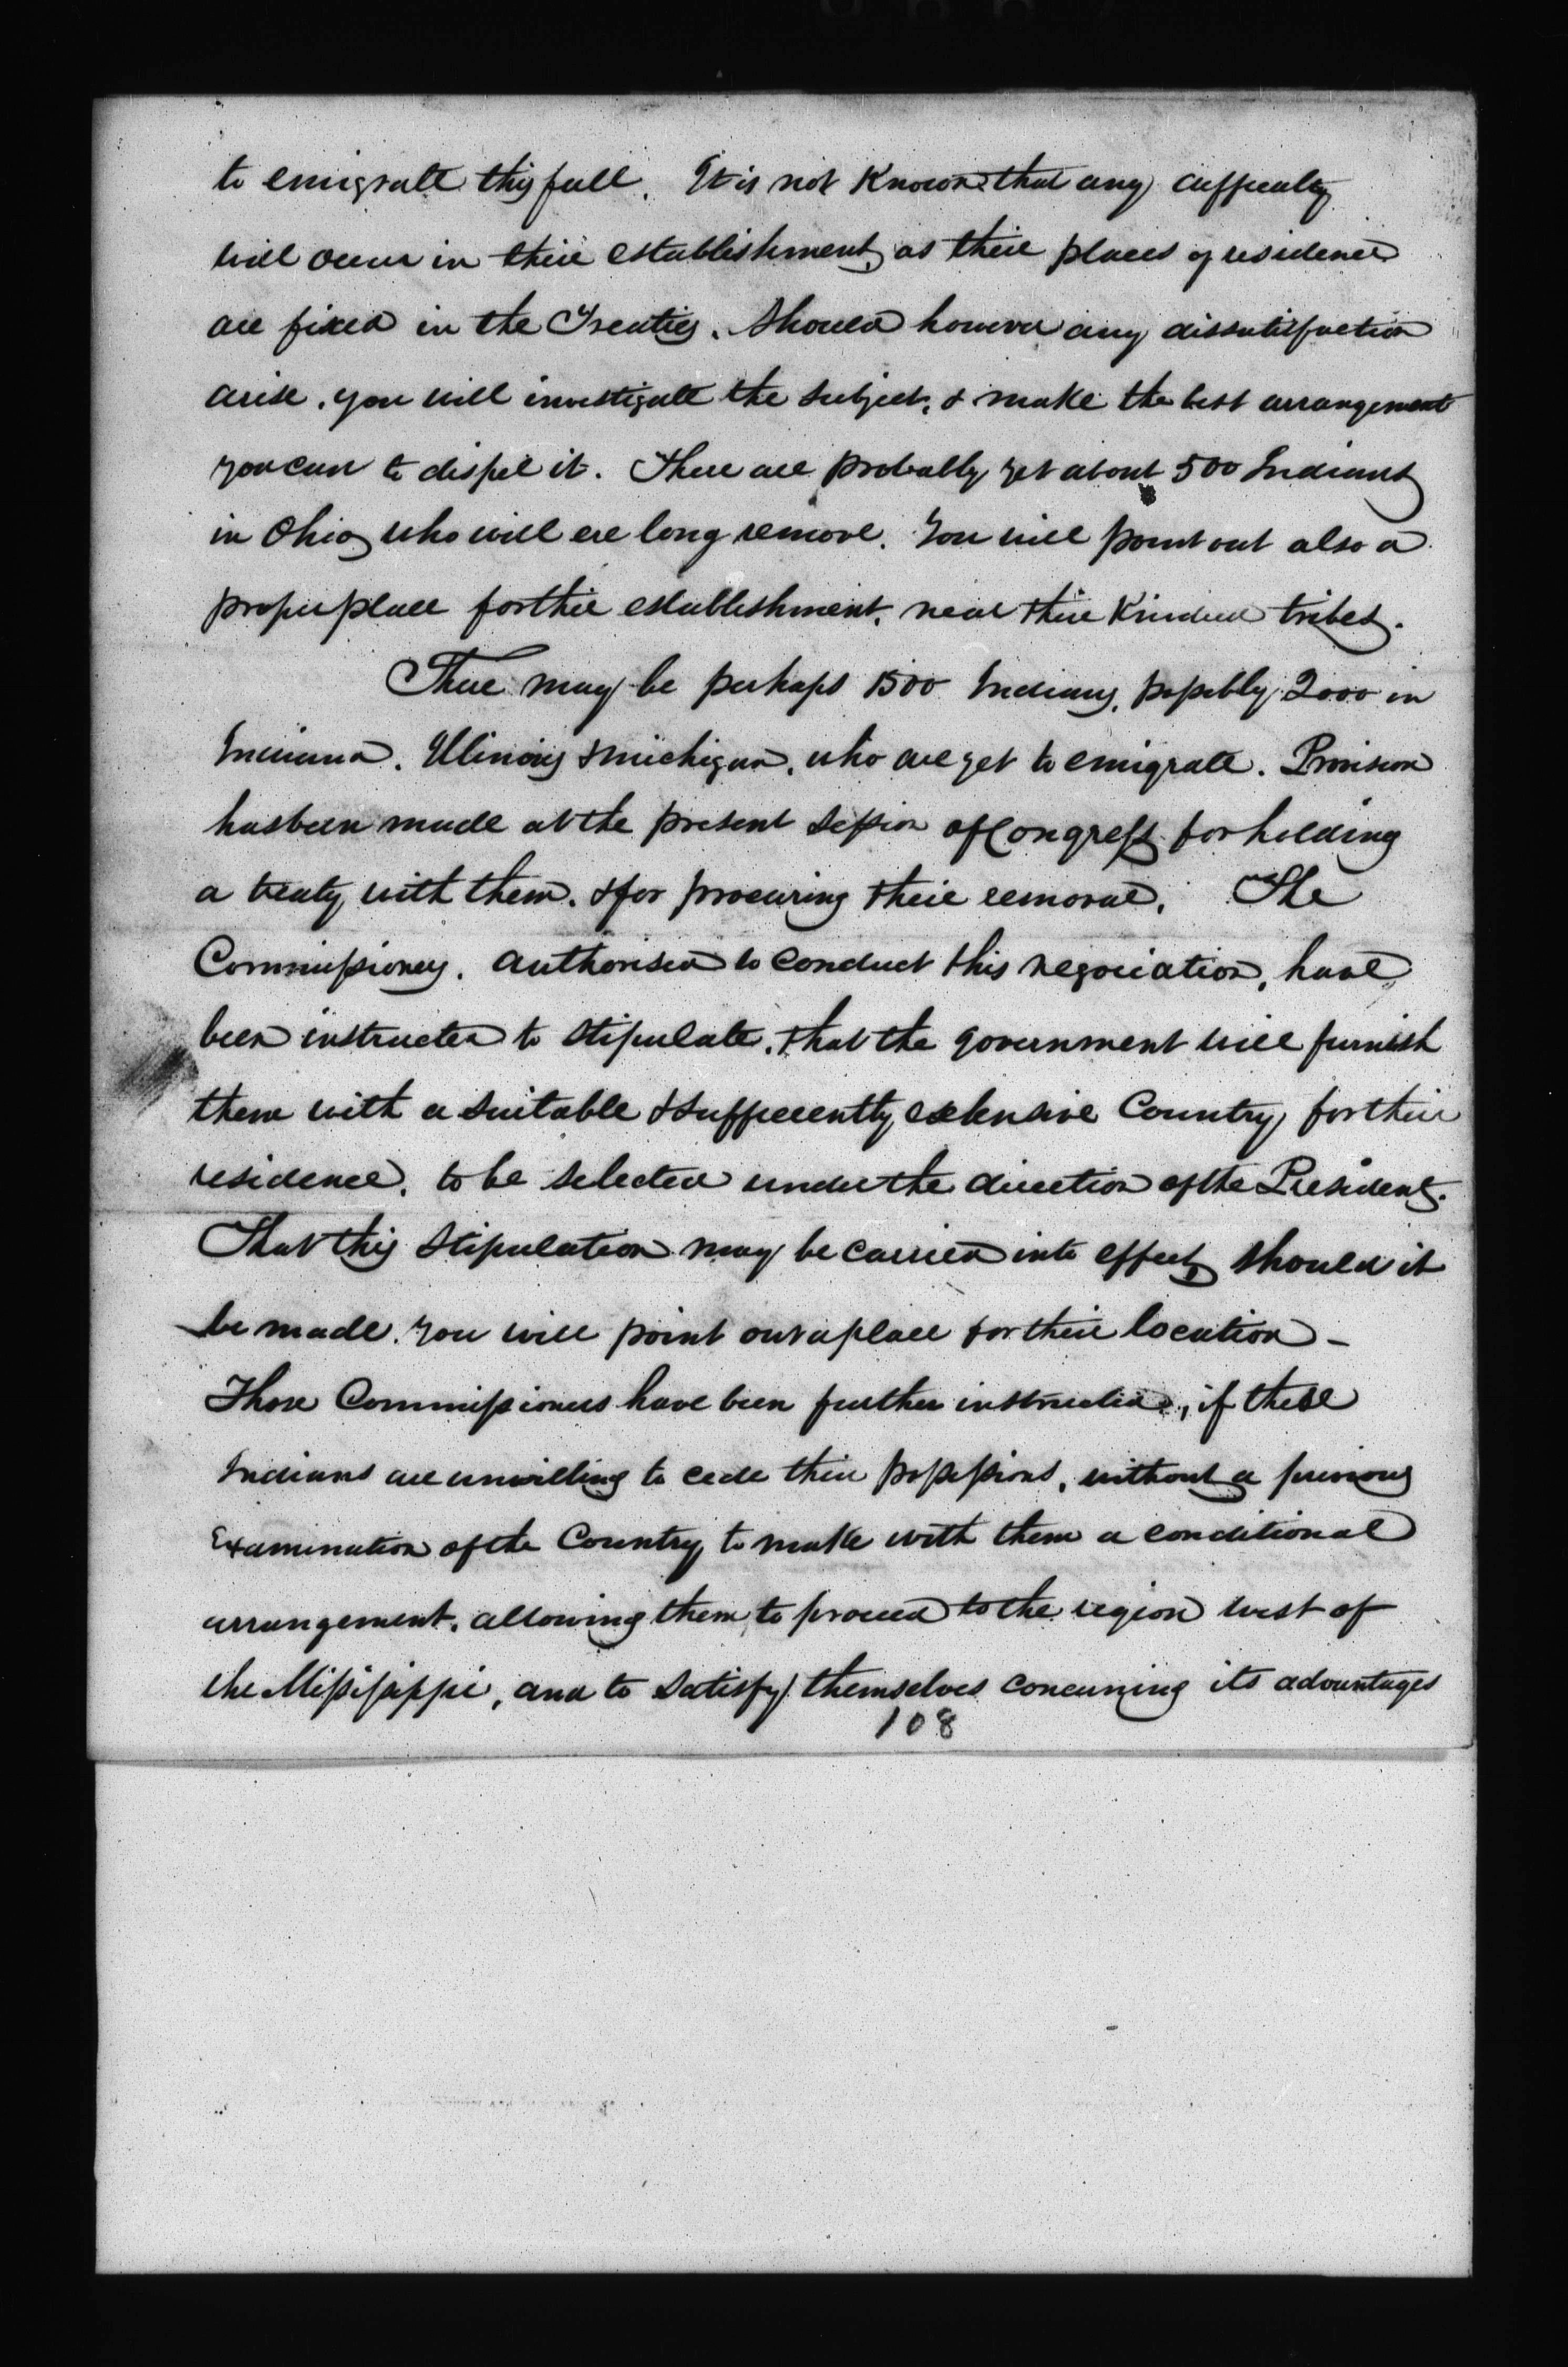 to emigrate this fall. It is not Known that any difficulty
will occur in their establishment, as their places of residence
are fixed in the Treaties. Should however any dissatisfaction
arise, you will investigate the subject, & make the best arrangement
you can to dispel it. There are probably yet about 500 Indians
in Ohio, who will ere long remove. You will point out also a
proper place for their establishment, near their Kindred tribes.
There may be perhaps 1500 Indians, possibly 2000 in
Indiana, Illinois & Michigan, who are yet to emigrate. Provision
has been made at the present Session of Congress for holding
a treaty with them, & for procuring their removal. The
Commissioners, authorised to conduct this negociation, have
been instructed to stipulate, that the government will furnish
them with a suitable & sufficiently extensive Country, for their
residence, to be selected under the direction of the President.
That this stipulation may be carried into effect, should it
be made, you will point out a place for their location –
Those Commissioners have been further instructed, if these
Indians are unwilling to cede their possessions, without a previous
Examination of the Country, to make with them a conditional
arrangement, allowing them to proceed to the region west of
the Mississippi, and to satisfy themselves concerning its advantages
108